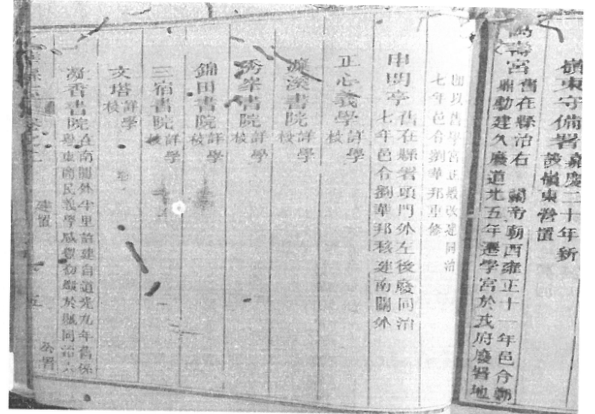 嶺東守備署
嘉慶二十年新
設嶺東營置
萬壽宮
舊在縣治右 關帝廟西雍正十一年邑令鄭
鼎勳建久廢道光五年遷學宮於戎府廢署地
即以舊學宮正殿改建同治
七年邑令劉華邦重修
申明亭
舊在縣署頭門外左後廢同治
七年邑令劉華邦移建南關外
正心義學
詳學
校
濂溪書院
詳學
校
秀峯書院
詳學
校
錦田書院
詳學
校
三宿書院
詳學
校
文塔
詳學
校
凝香書院
在南關外半里許建自道光九年舊係
粵東商民義學咸豐初燬於賊同治六
縣志
建置
公署